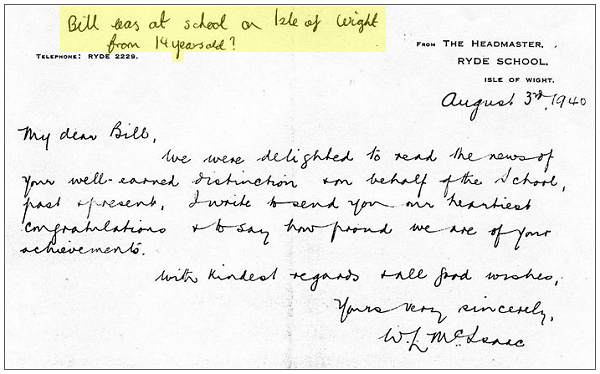 Bill was at school on Isle of Wight
from 14 years old?
TELEPHONE: RYDE 2229.
FROM THE HEADMASTER,
RYDE SCHOOL,
ISLE OF WIGHT.
August 3rd, 1940
My dear Bill,
We were delighted to read the news of
your well-earned distinction & on behalf of the School,
past & present, I write to send you our heartiest
congratulations & to say how proud we are of your
achievements.
With kindest regards & all good wishes,
Yours very sincerely,
W. L. McIsaac